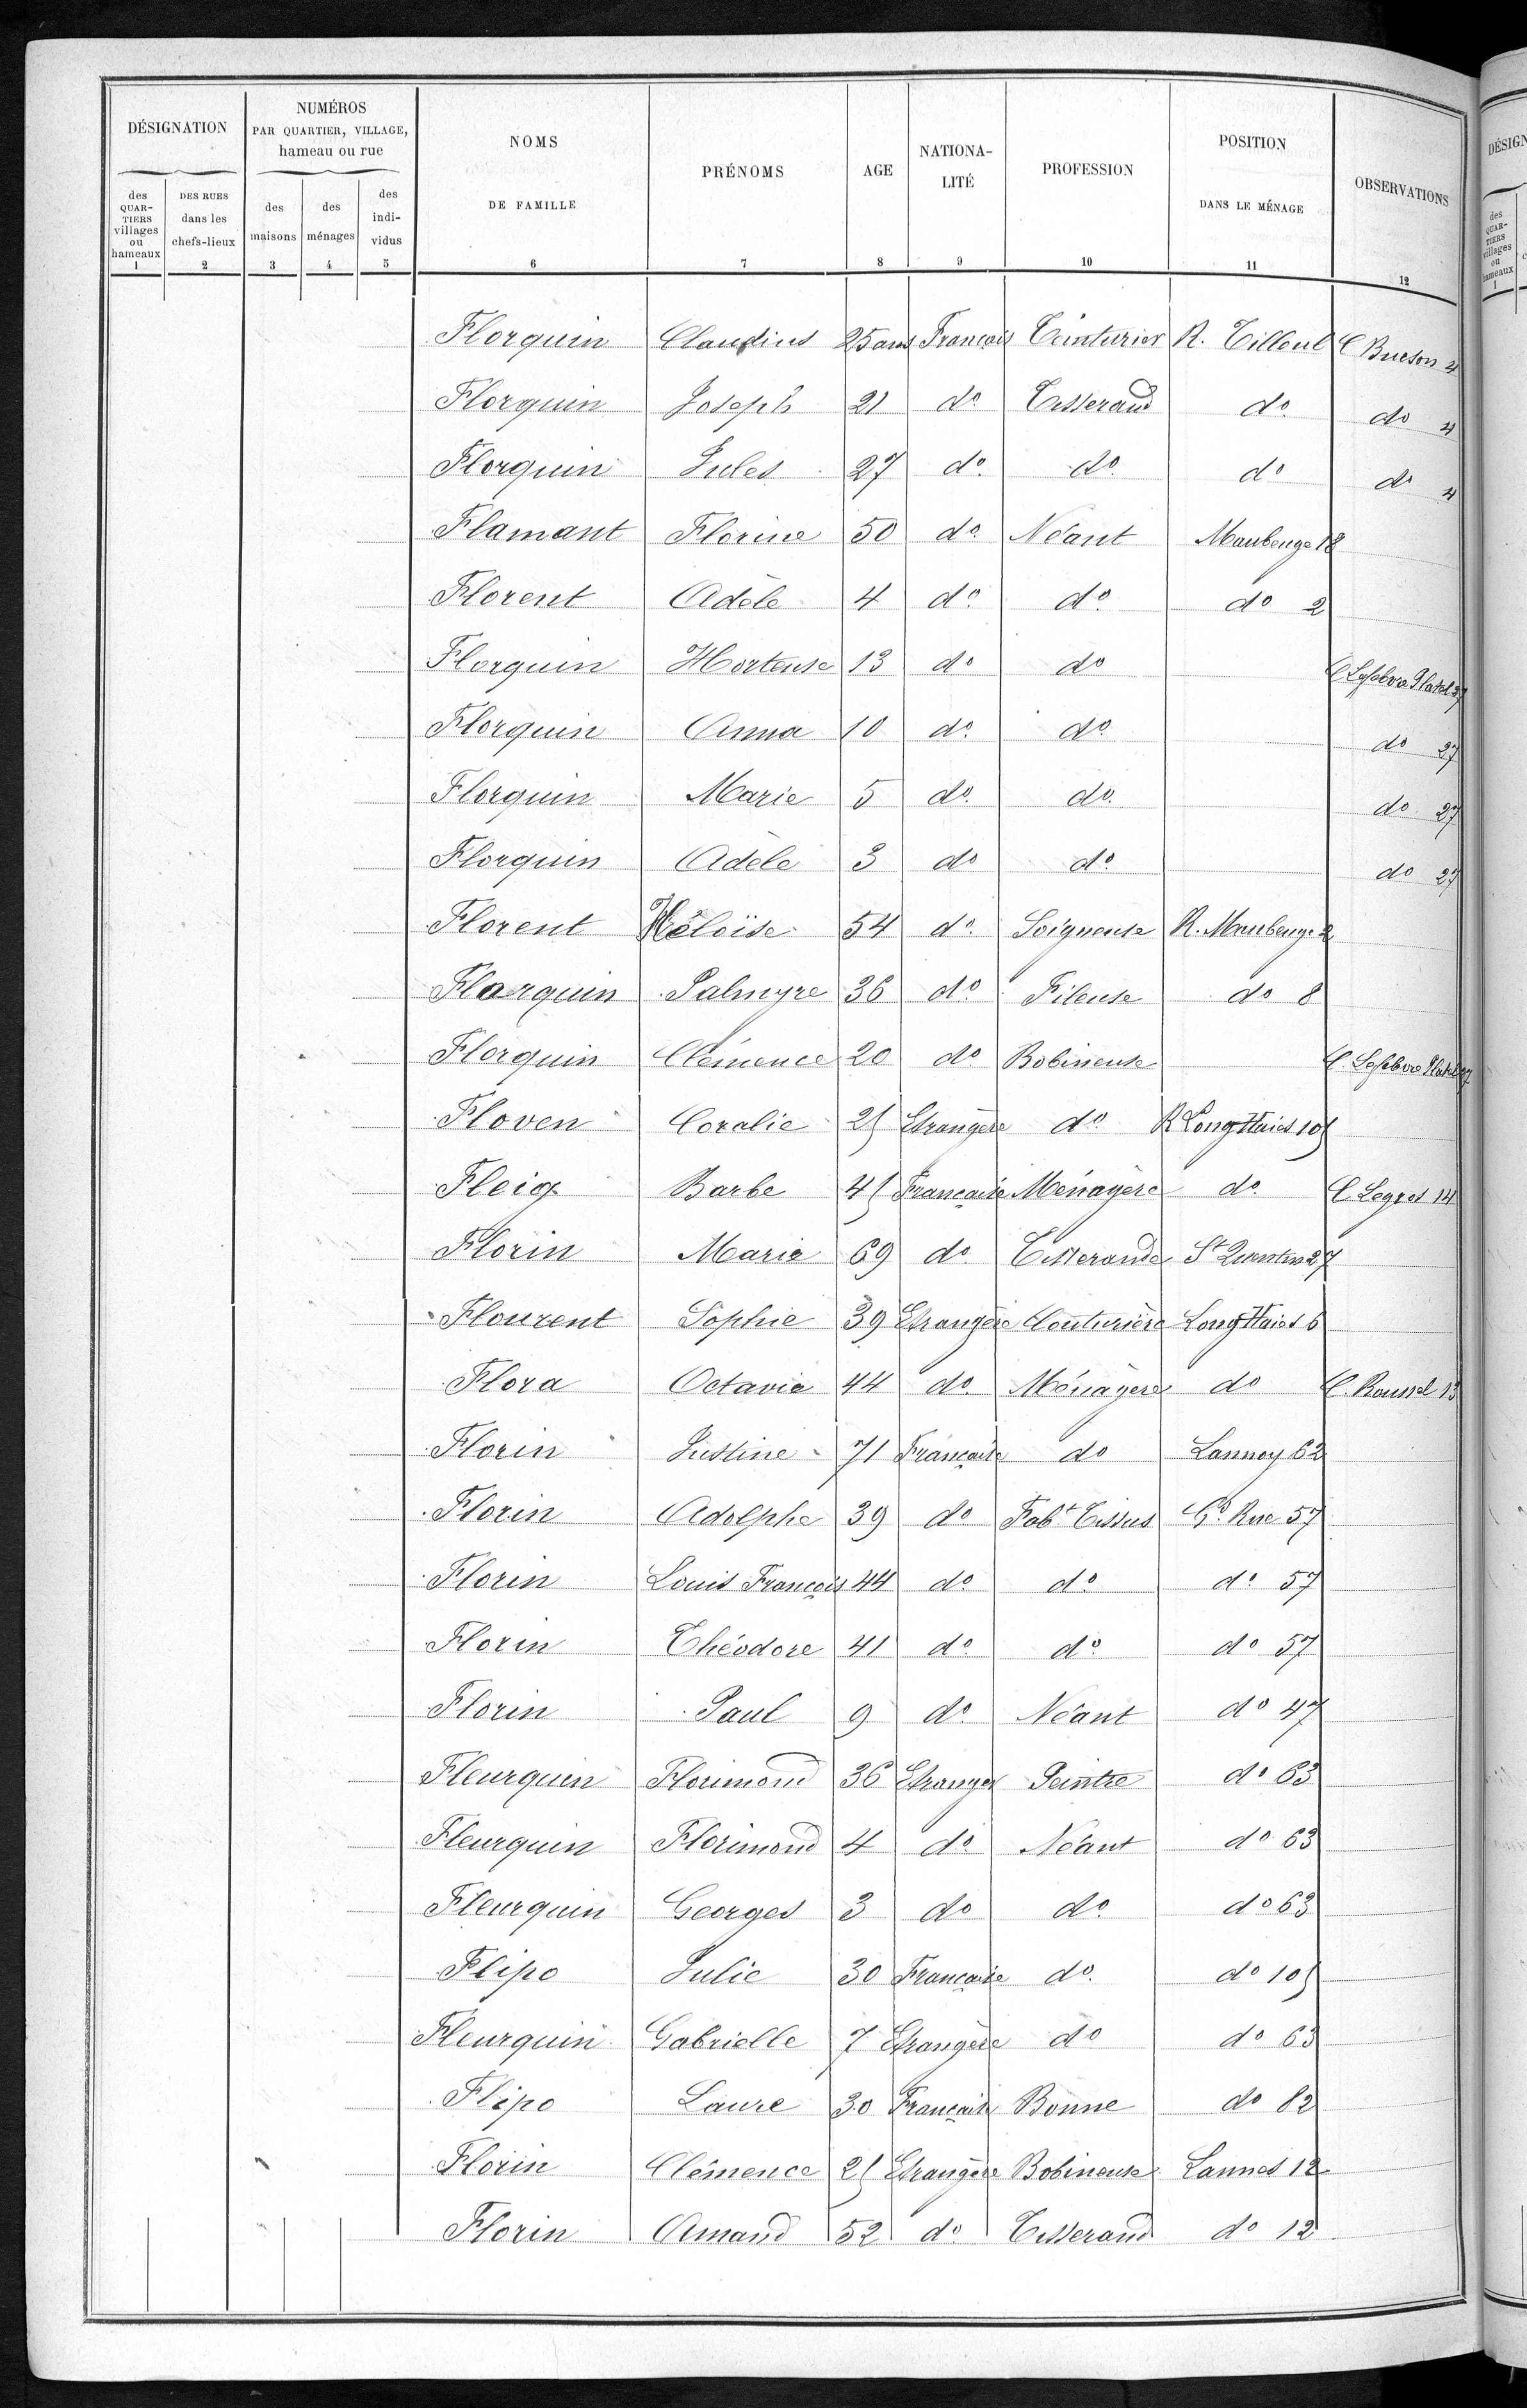 DÉSIGNATION
NUMÉROS
PAR QUARTIER, VILLAGE,
hameau ou rue
NOMS
DE FAMILLE
PRÉNOMS
AGE
NATIONA-
LITÉ
PROFESSION
POSITION
DANS LE MÉNAGE
OBSERVATIONS
des
QUAR-
TIERS
villages
ou
hameaux
DES RUES
dans les
chefs-lieux
des
maisons
des
ménages
des
indi-
vidus
1 2 3 4 5 6 7 8 9 10 11 12
Florquin Claudius 25 ans Français Teinturier R. Tilleul C Buison 4
Florquin Joseph 21 do Tisserand do do 4
Florquin Jules 27 do do do do 4
Flamant Florine 50 do Néant Maubeuge 18
Florent Adèle 4 do do do 2
Florquin Hortense 13 do do C Lefebvre Platel 27
Florquin Anna 10 do do do 27
Florquin Marie 5 do do do 27
Florquin Adèle 3 do do do 27
Florent Héloïse 54 do Soigneuse R. Maubeuge 2
Florquin Palmyre 36 do Fileuse do 8
Florquin Clémence 20 do Bobineuse C. Lefebvre Platel 27
Floven Coralie 25 Etrangère do R Long Haies 105
Fleig Barbe 45 Française Ménagère do C Legros 14
Florin Marie 69 do Tisserande St Quentin 27
Flourent Sophie 39 Etrangère Couturière Long Haies 6
Flora Octavie 44 do Ménagère do C. Roussel 13
Florin Justine 71 Française do Lannoy 62
Florin Adolphe 39 do Fabt Tissus Gd Rue 57
Florin Louis François 44 do do do 57
Florin Théodore 41 do do do 57
Florin Paul 9 do Néant do 47
Fleurquin Florimond 36 Etranger Peintre do 63
Fleurquin Florimond 4 do Néant do 63
Fleurquin Georges 3 do do do 63
Flipo Julie 30 Française do do 105
Fleurquin Gabrielle 7 Etrangère do do 63
Flipo Laure 30 Française Bonne do 82
Florin Clémence 25 Etrangère Bobineuse Lannes 12
Florin Amand 52 do Tisserand do 12